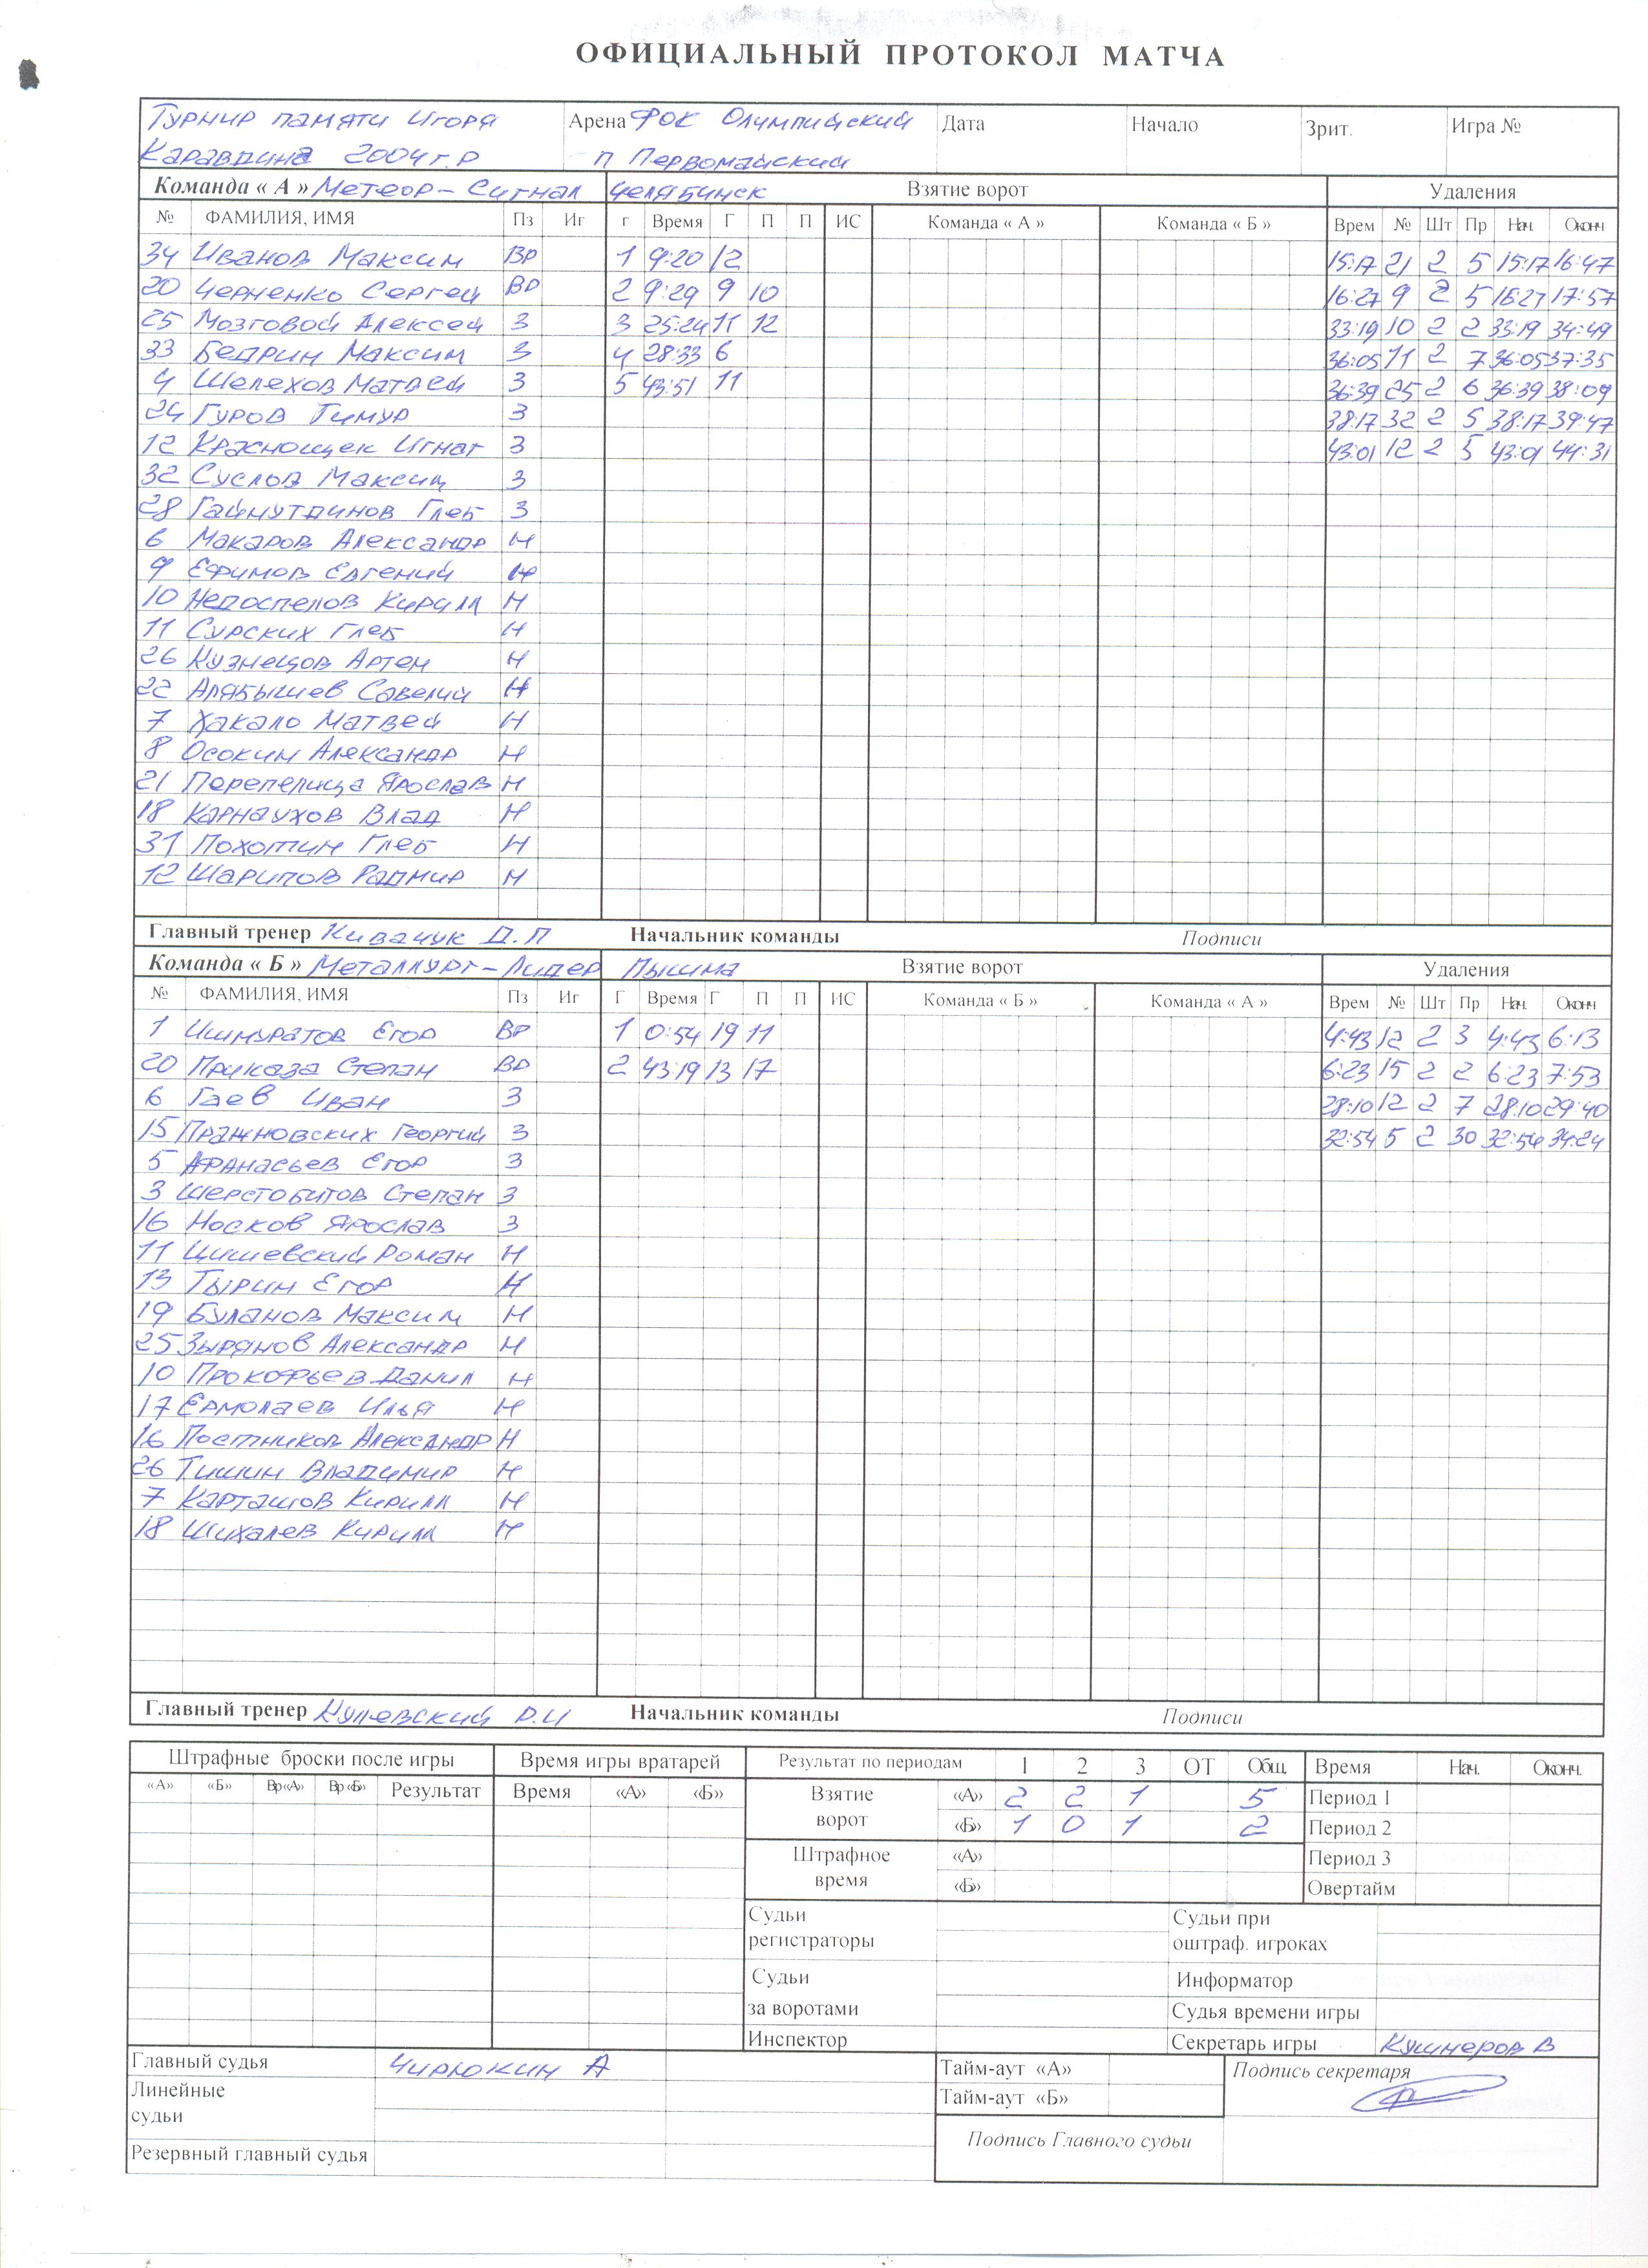 ОФИЦИАЛЬНЫЙ ПРОТОКОЛ МАТЧА
Турнир памяти Игоря Арена ФОК Олимпийский Дата Начало Зрит. Игра №
Каравдина 2004 г.р п Первомайский
Команда « А » Метеор-Сигнал Челябинск Взятие ворот Удаления
№ ФАМИЛИЯ, ИМЯ Пз Иг г Время Г П П ИС Команда « А » Команда « Б » Врем № Шт Пр Нач. Оконч
34 Иванов Максим Вр 1 9:20 12 15:17 21 2 5 15:17 16:47
20 Черненко Сергей Вр 2 9:29 9 10 16:27 9 2 5 16:27 17:57
25 Мозговой Алексей З 3 25:24 11 12 33:19 10 2 2 33:19 34:49
33 Бедрин Максим З 4 28:33 6 36:05 11 2 7 36:05 37:35
4 Шелехов Матвей З 5 43:51 11 36:39 25 2 6 36:39 38:09
24 Гуров Тимур З 38:17 32 2 5 38:17 39:47
12 Краснощек Игнат З 43:01 12 2 5 43:01 44:31
32 Суслов Максим З
28 Гайнутдинов Глеб З
6 Макаров Александр Н
9 Ефимов Евгений Н
10 Недоспелов Кирилл Н
11 Сурских Глеб Н
26 Кузнецов Артем Н
22 Алябышев Савелий Н
7 Хакало Матвей Н
8 Осокин Александр Н
21 Перепелица Ярослав Н
18 Карнаухов Влад Н
31 Похотин Глеб Н
12 Шарипов Радмир Н
Главный тренер Кивачук Д.П Начальник команды Подписи
Команда « Б » Металлург-Лидер Пышма Взятие ворот Удаления
№ ФАМИЛИЯ, ИМЯ Пз Иг Г Время Г П П ИС Команда « Б » Команда « А » Врем № Шт Пр Нач. Оконч
1 Ишмуратов Егор Вр 1 0:54 19 11 4:43 12 2 3 4:43 6:13
20 Приказа Степан Вр 2 43:19 13 17 6:23 15 2 2 6:23 7:53
6 Гаев Иван З 28:10 12 2 7 28:10 29:40
15 Пражновских Георгий З 32:54 5 2 30 32:54 34:24
5 Афанасьев Егор З
3 Шерстобитов Степан З
16 Носков Ярослав З
11 Цишевский Роман Н
13 Тырин Егор Н
19 Буланов Максим Н
25 Зырянов Александр Н
10 Прокофьев Данил Н
17 Ермолаев Илья Н
16 Постников Александр Н
26 Тишин Владимир Н
7 Карташов Кирилл Н
18 Шихалев Кирилл Н
Главный тренер Кулевский Р.И Начальник команды Подписи
Штрафные броски после игры Время игры вратарей Результат по периодам 1 2 3 ОТ Общ. Время Нач. Оконч.
«А» «Б» Вр «А» Вр «Б» Результат Время «А» «Б» Взятие «А» 2 2 1 5 Период 1
ворот «Б» 1 0 1 2 Период 2
Штрафное «А» Период 3
время «Б» Овертайм
Судьи Судьи при
регистраторы оштраф. игроках
Судьи Информатор
за воротами Судья времени игры
Инспектор Секретарь игры Кушнеров В
Главный судья Чирюкин А Тайм-аут «А» Подпись секретаря
Линейные Тайм-аут «Б»
судьи
Подпись Главного судьи
Резервный главный судья